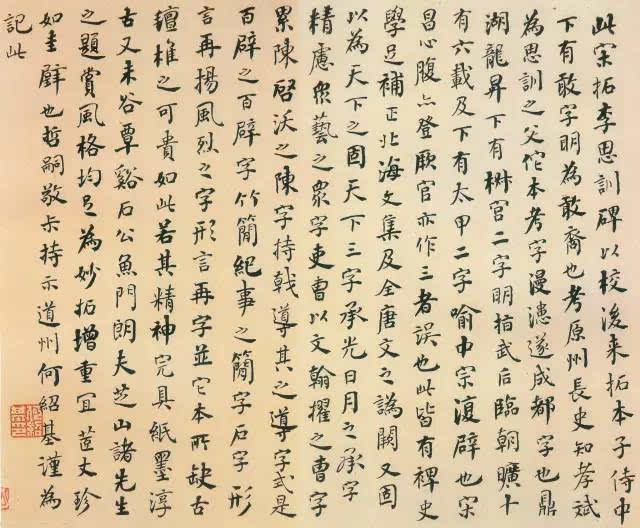 此宋拓李思訓碑以校後来拓本子侍中
下有敢字明為敢裔也考原州長史知孝斌
為思訓之父佗本考字漫漶遂成都字也鼎
湖龍昇下有樹宫二字明指武后臨朝曠十
有六載及下有太甲二字喻中宗復辟也宋
昌心腹六登厥官亦作三者誤也此皆有裨史
學足補正北海文集及全唐文之譌闕又固
以為天下之固天下三字承光日月之承字
精慮衆藝之衆字吏曹以文翰擢之曹字
累陳啓沃之陳字持戟導其之導字式是
百辟之百辟字竹簡紀事之簡字石字形
言再揚風烈之字形言再字並它本所缺古
氊椎之可貴如此若其精神完具紙墨淳
古又未谷覃谿石公魚門朗夫芝山諸先生
之題賞風格均足為妙拓增重宜茞丈珍
如圭璧也哲嗣敬尗持示道州何紹基謹為
記此